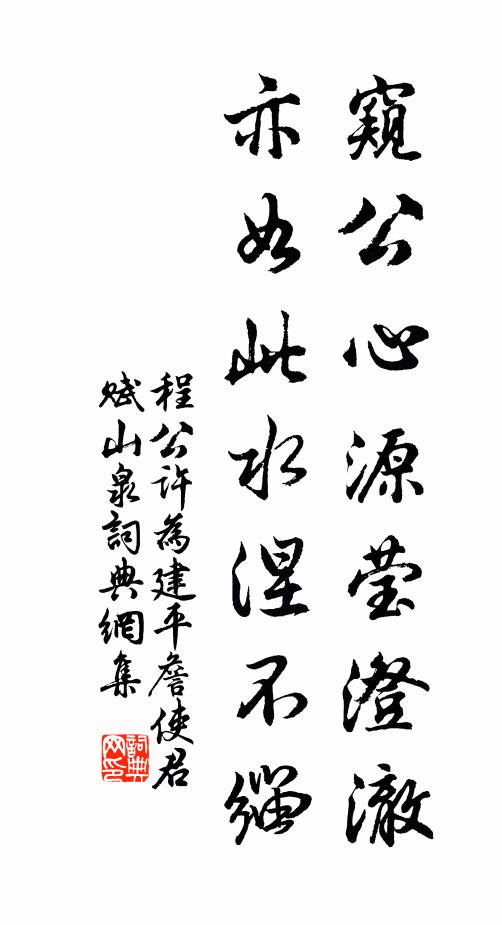 窺公心源莹澄澈
亦如此水涅不緇
程公許為建平詹使君
賦山泉詞典網集
詞典
网印